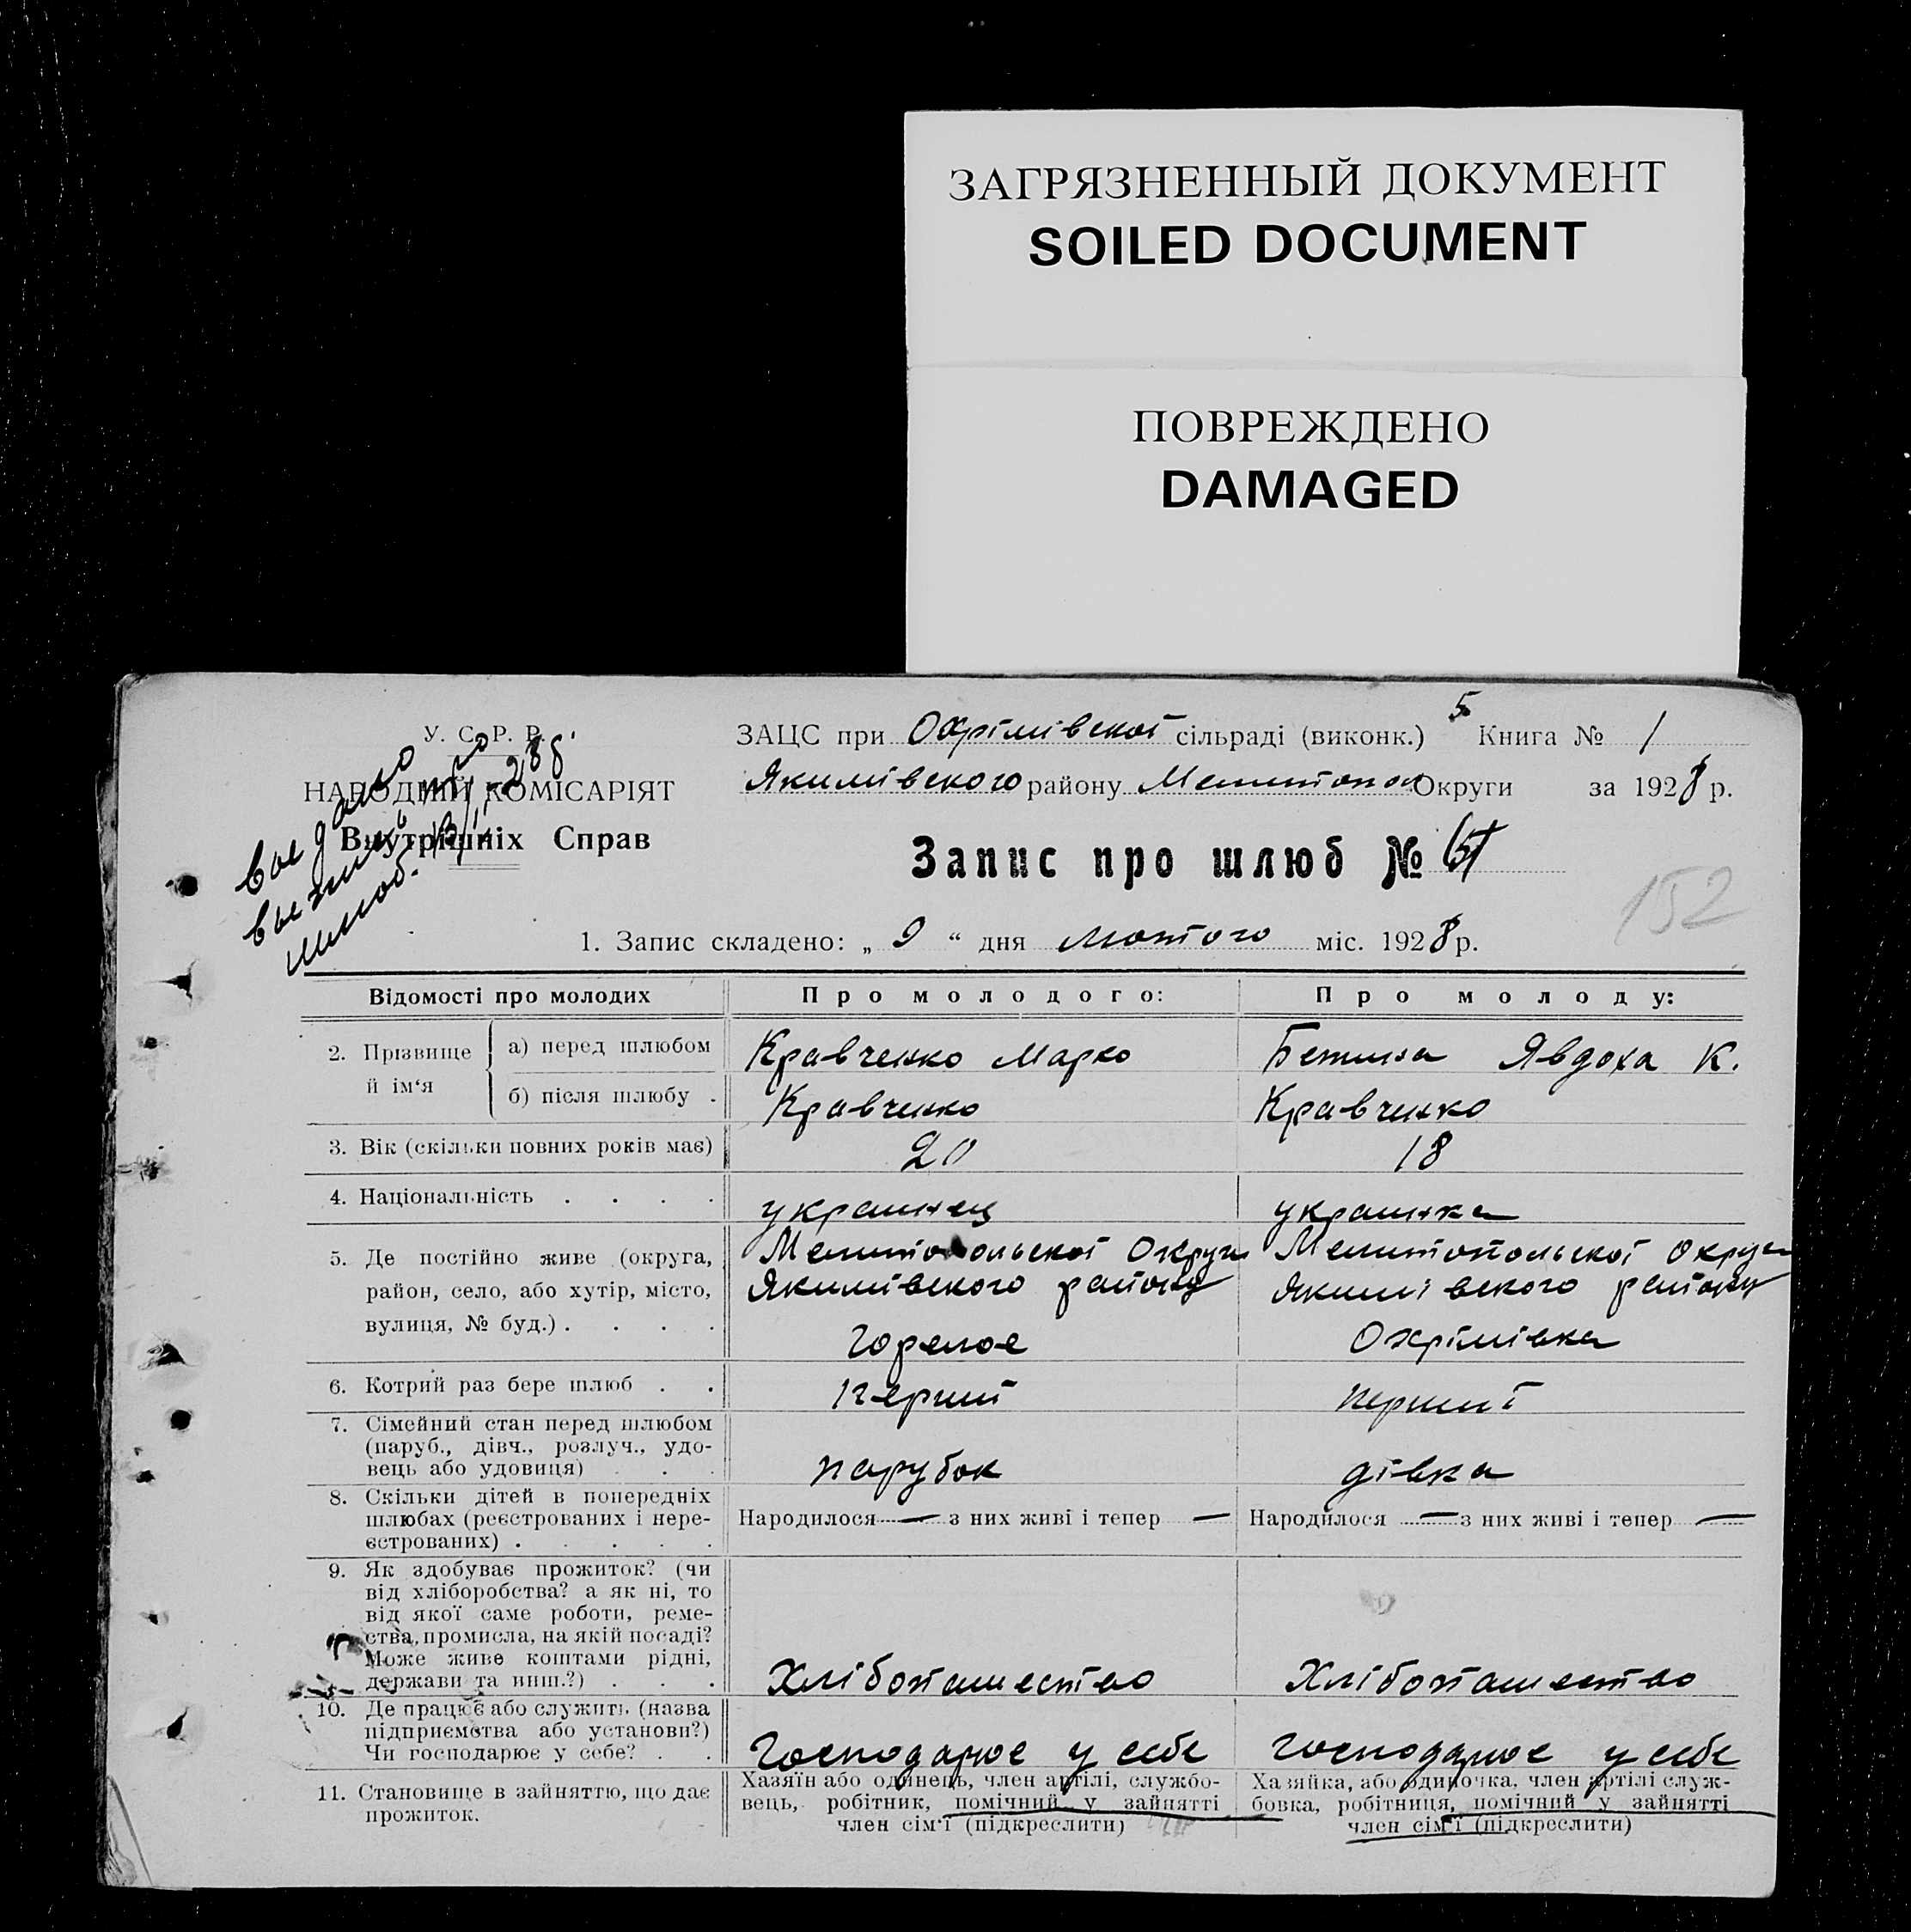 ЗАГРЯЗНЕННЫЙ ДОКУМЕНТ
SOILED DOCUMENT
ПОВРЕЖДЕНО
DAMAGED
У. С. Р. Р.
НАРОДНІЙ КОМІСАРІЯТ
Внутрішніх Справ
ЗАЦС при Охрімівської сільраді (виконк.) 5 Книга № 1
Якимівського району Мелитопол Округи за 1928 р.
Запис про шлюб №
152
1. Запис складено: „ 9 “ дня лютого міс. 1928 р.
Відомості про молодих Про молодого: Про молоду:
2. Прізвище й ім‘я а) перед шлюбом Кравченко Марко Явдоха К.
б) після шлюбу . Кравченко Кравченко
3. Вік (скільки повних років має) 20 18
4. Національність . . . . украинец украинка
5. Де постійно живе (округа, Мелитопольскої Округи Мелитопольскої Округи
район, село, або хутір, місто, Якимівского району Якимівского району
вулиця, № буд.) . . . . Горелое Охрімівка
6. Котрий раз бере шлюб . . перший перший
7. Сімейний стан перед шлюбом
(паруб., дівч., розлуч., удо-
вець або удовиця) . . . парубок дівка
8. Скільки дітей в попередніх
шлюбах (реєстрованих і нере- Народилося — з них живі і тепер — Народилося — з них живі і тепер —
єстрованих) . . . . .
9. Як здобуває прожиток? (чи
від хліборобства? а як ні, то
від якої саме роботи, реме-
ства, промисла, на якій посаді?
Може живе коштами рідні,
держави та инш.?) . . . Хлібопашество Хлібопашество
10. Де працює або служить (назва
підприємства або установи?)
Чи господарює у себе? . . Господарює у себе Господарює у себе
11. Становище в зайняттю, що дає
прожиток.
Хазяїн або одинець, член артілі, службо-
вець, робітник, помічний у зайнятті
член сім‘ї (підкреслити)
Хазяйка, або одиночка, член артілі служ-
бовка, робітниця, помічний у зайнятті
член сім‘ї (підкреслити)